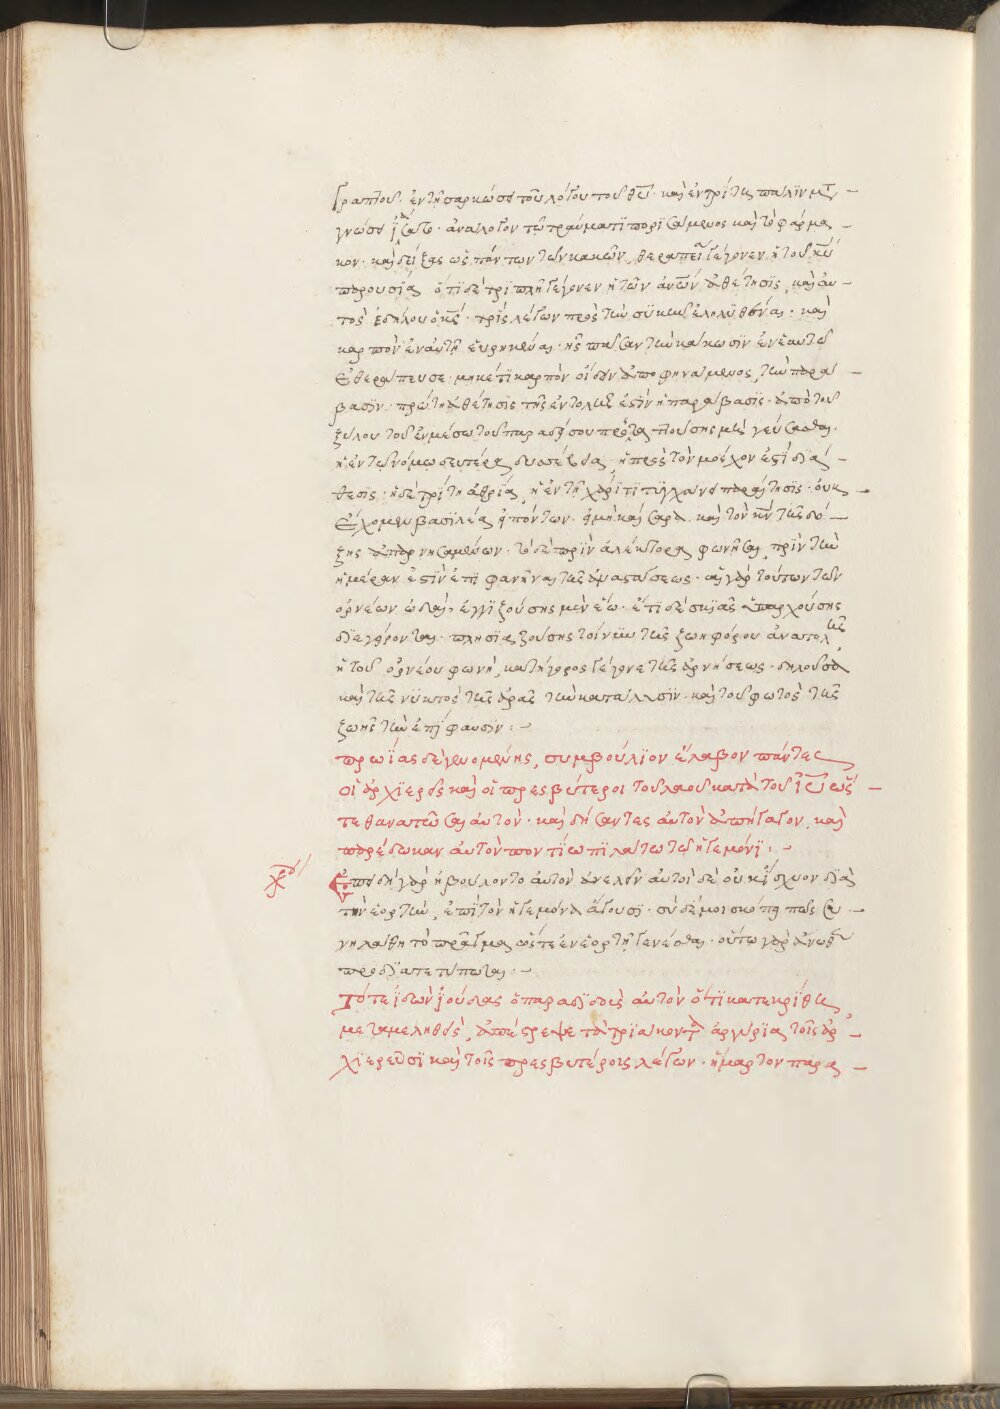 γραπτοῦ· ἐν τῇ σαρκώσει τοῦ λόγου τοῦ θυ· καὶ ἐν τρίταις πάλϊν μετ
γνώσει ἰᾶσατο· ἀνάλογον τῷ τραύματϊ πορϊσάμενος καὶ τὸ φάρμα
κον· καὶ δείξας ὡς πάντων τῶν κακῶν, θεραπεία γέγονεν ἡ τοῦ κυ
παρουσία ὅτϊ δὲ τρϊπλῆ γέγονεν ἡ τῶν ανων ἀθέτησϊς, καὶ αὐ
τὸς ἐδήλου ὁ κς· τρὶς λέγων πρὸς τὴν συκῆν ἐληλϋθέναι· καὶ
καρπὸν ἐν αὐτῇ εὑρηκέναι· ἧς πᾶσαν τὴν κάκωσϊν ἐν ἑαυτῷ
ἐθεράπευσε· μηκέτϊ καρπὸν οἴσειν ἀποφηνάμενος, τὴν παρά
βασϊν· πρώτη ἀθέτησϊς τῆς ἐντολῆς ἐστὶν ἡ παράβασϊς· ἀπὸ τοῦ
ξύλου τοῦ ἐν μέσω τοῦ παραδείσου προστατούσης μὴ γεύσασθαι·
ἡ ἐν τῷ νόμω δευτέρα δυσσέβεια, ἡ πρὸς τὸν μόσχον ἐστὶ δϊά
θεσϊς· ἡ δὲ τρίτη ἀθεΐα, ἡ ἐν τῇ χάρϊτϊ τυγχάνει παραίτησϊς· οὐκ
ἔχομεν βασϊλέα εἰπόντων· εἰ μὴ καίσαρα καὶ τὸν κν τῆς δό
ξης ἀπαρνησαμένων· τὸ δὲ πρϊν ἀλέκτορα φωνῆσαι, πρϊν τὴν
ἡμέραν ἐστὶν ἔτϊ φανῆναι τῆς ἀναστάσεως· αἱ γὰρ τούτων τῶν
ὀρνέων ὠδαί, ἐγγϊζούσης μὲν ἕω· ἔτϊ δὲ σκϊᾶς ὑπαρχούσης
δϊεγείρονται· πλησϊαζούσης τοίνυν τῆς ζωηφόρου ἀνατολῆς
ἡ τοῦ ὀρνέου φωνή, κατήγορος γέγονε τῆς ἀρνήσεως· δηλοῦσα
καὶ τῆς νϋκτὸς τῆς ἀρᾶς τὴν κατάλυσϊν· καὶ τοῦ φωτὸς τῆς
ζωῆς τὴν ἐπίφαυσϊν:–
πρωΐας δὲ γενομένης, συμβούλϊον ἔλαβον πάντες
οἱ ἀρχϊερεῖς καὶ οἱ πρεσβύτεροι τοῦ λαοῦ κατὰ τοῦ ιυ ὥς
τε θανατῶσαι αὐτόν· καὶ δήσαντες αὐτὸν ἀπήγαγον, καὶ
παρέδωκαν αὐτὸν ποντίω πϊλάτω τῷ ἡγεμόνϊ:–
Ἐπειδὴ γὰρ ἠβούλοντο αὐτὸν ἀνελεῖν αὐτοὶ δὲ οὐκ ἴσχυον δϊὰ
τὴν ἑορτήν, ἐπὶ τὸν ἡγεμόνα ἄγουσϊ· σὺ δέ μοι σκόπει πῶς συ
νηλάθη τὸ πρᾶγμα ὥστε ἐν ἑορτῇ γενέσθαι· οὕτω γὰρ ἄνωθεν
προδϊατετύπωται:–
Τότε ἰδὼν ἰούδας ὁ παραδϊδοὺς αὐτὸν ὅτϊ κατεκρίθη,
μεταμεληθείς, ἀπέστρεψε τὰ τρϊάκοντα ἀργύρϊα τοῖς ἀρ
χϊερεῦσϊ καὶ τοῖς πρεσβυτέροις λέγων· ἥμαρτον παρα